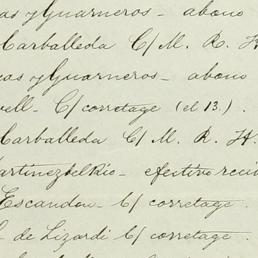 as y Guarneros - abono
Carballeda C/ M. R. H
as y Guarneros - abono
ell - C/ corretage (el 13.) .
Carballeda C/ M. R. H.
artinez del Rio - efectivo reci
Escandon - C/ corretage .
de Lizardi C/ corretage .